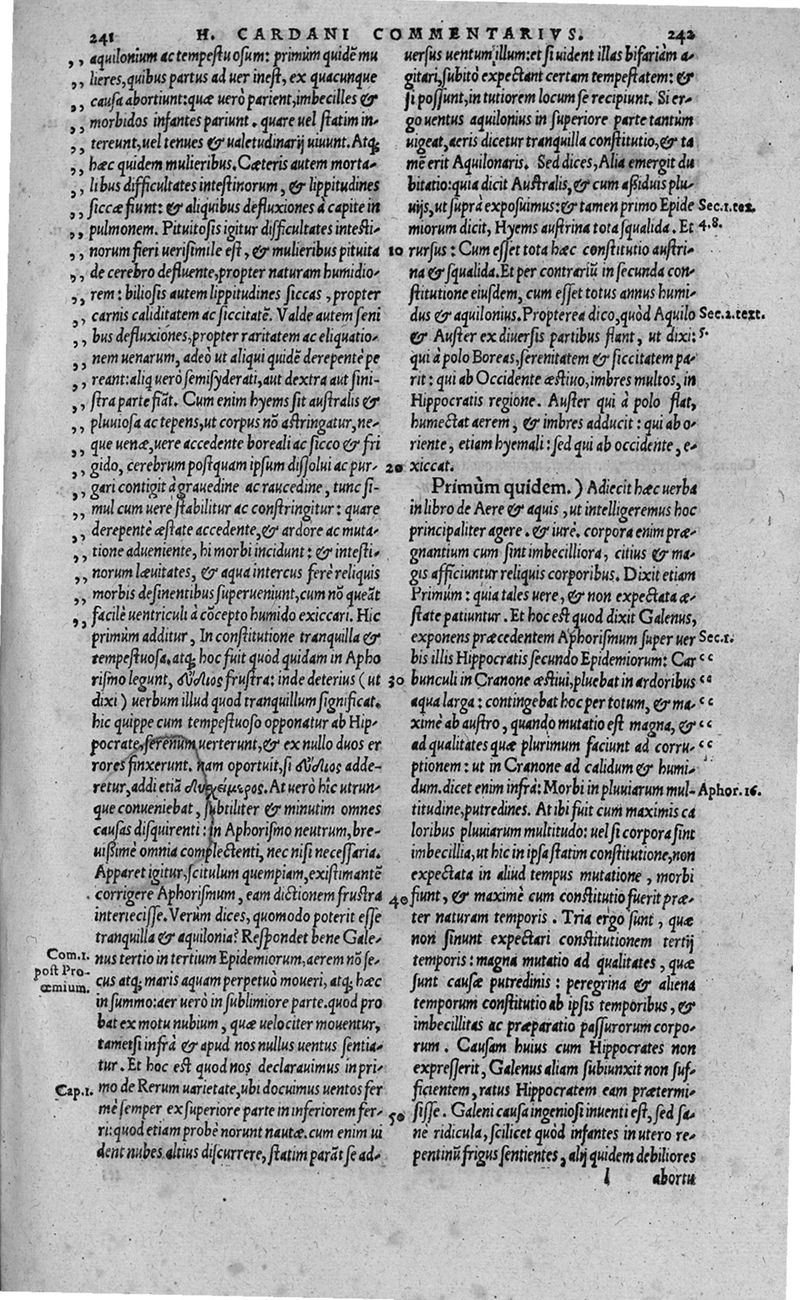 241 H. CARDANI COMMENTARIVS. 242
,, aquilonium ac tempestuosum: primùm quidẽ mu
,, lieres, quibus partus ad uer inest, ex quacunque
,, causa abortiunt: quæ uerò parient, imbecilles &
,, morbidos infantes pariunt. quare uel statim in-
,, tereunt, uel tenues & ualetudinarij uiuunt. Atq;
,, hæc quidem mulieribus. Cæteris autem morta-
,, libus difficultates intestinorum, & lippitudines
,, siccæ fiunt: & aliquibus defluxiones à capite in
,, pulmonem. Pituitosis igitur difficultates intesti-
,, norum fieri uerisimile est, & mulieribus pituita
,, de cerebro defluente, propter naturam humidio-
,, rem: biliosis autem lippitudines siccas, propter
,, carnis caliditatem ac siccitatẽ. Valde autem seni
,, bus defluxiones, propter raritatem ac eliquatio-
,, nem uenarum, adeò ut aliqui quidẽ derepentè pe
,, reant: aliq̃ uerò semisyderati, aut dextra aut sini-
,, stra parte fiãt. Cum enim hyems sit australis &
,, pluuiosa ac tepens, ut corpus nõ astringatur, ne-
,, que uenæ, uere accedente boreali ac sicco & fri
,, gido, cerebrum postquam ipsum dissolui ac pur-
,, gari contigit à grauedine ac raucedine, tunc si-
,, mul cum uere stabilitur ac constringitur: quare
,, derepentè æstate accedente, & ardore ac muta-
,, tione adueniente, hi morbi incidunt: & intesti-
,, norum læuitates, & aqua intercus ferè reliquis
,, morbis desinentibus superueniunt, cum nõ queãt
,, facilè uentriculi à cõcepto humido exiccari. Hic
primùm additur, In constitutione tranquilla &
tempestuosa. atq; hoc fuit quòd quidam in Apho
rismo legunt, εὔδιος frustra: inde deterius (ut
dixi) uerbum illud quod tranquillum significat.
hic quippe cum tempestuoso opponatur ab Hip-
pocrate, serenum uerterunt, & ex nullo duos er
rores finxerunt. nam oportuit, si εὔδιος adde-
retur, addi etiã δυσχείμερος. At uerò hîc utrun-
que conueniebat, subtiliter & minutim omnes
causas disquirenti: in Aphorismo neutrum, bre-
uissimè omnia complectenti, nec nisi necessaria.
Apparet igitur, scitulum quempiam, existimantẽ
corrigere Aphorismum, eam dictionem frustra
interiecisse. Verùm dices, quomodo poterit esse
tranquilla & aquilonia? Respondet bene Gale-
Com. 1. post Proœmium.
nus tertio in tertium Epidemiorum, aerem nõ se-
cus atq; maris aquam perpetuò moueri, atq; hæc
in summo: aer uerò in sublimiore parte. quod pro
bat ex motu nubium, quæ uelociter mouentur,
tametsi infrà & apud nos nullus uentus sentia-
tur. Et hoc est quod nos declarauimus in pri-
Cap. 1.
mo de Rerum uarietate, ubi docuimus uentos fer
mè semper ex superiore parte in inferiorem fer-
ri: quod etiam probè norunt nautæ. cum enim ui
dent nubes altius discurrere, statim parãt se ad-
uersus uentum illum: et si uident illas bifariàm a-
gitari, subitò expectant certam tempestatem: &
si possunt, in tutiorem locum se recipiunt. Si er-
go uentus aquilonius in superiore parte tantùm
uigeat, aeris dicetur tranquilla constitutio, & ta
mẽ erit Aquilonaris. Sed dices, Alia emergit du
bitatio: quia dicit Australis, & cum assiduis plu-
uijs, ut suprà exposuimus: & tamen primo Epide Sec. 1. tex.
miorum dicit, Hyems austrina tota squalida. Et 4.8.
10 rursus: Cum esset tota hæc constitutio austri-
na & squalida. Et per contrariũ in secunda con-
stitutione eiusdem, cum esset totus annus humi-
dus & aquilonius. Propterea dico, quòd Aquilo Sec. 2. text.
& Auster ex diuersis partibus flant, ut dixi: 5.
qui à polo Boreas, serenitatem & siccitatem pa-
rit: qui ab Occidente æstiuo, imbres multos, in
Hippocratis regione. Auster qui à polo flat,
humectat aerem, & imbres adducit: qui ab o-
riente, etiam hyemali: sed qui ab occidente, e-
20 xiccat.
Primùm quidem.) Adiecit hæc uerba
in libro de Aere & aquis, ut intelligeremus hoc
principaliter agere. & iurè. corpora enim præ-
gnantium cum sint imbecilliora, citius & ma-
gis afficiuntur reliquis corporibus. Dixit etiam
Primùm: quia tales uere, & non expectata æ-
state patiuntur. Et hoc est quod dixit Galenus,
exponens præcedentem Aphorismum super uer Sec. 1.
bis illis Hippocratis secundo Epidemiorum: Car “
30 bunculi in Cranone æstiui, pluebat in ardoribus “
aqua larga: contingebat hoc per totum, & ma- “
ximè ab austro, quando mutatio est magna, & “
ad qualitates quæ plurimum faciunt ad corru- “
ptionem: ut in Cranone ad calidum & humi-
dum. dicet enim infrà: Morbi in pluuiarum mul- Aphor. 16.
titudine, putredines. At ibi fuit cum maximis ca
loribus pluuiarum multitudo: uel si corpora sint
imbecillia, ut hic in ipsa statim constitutione, non
expectata in aliud tempus mutatione, morbi
40 fiunt, & maximè cum constitutio fuerit præ-
ter naturam temporis. Tria ergo sunt, quæ
non sinunt expectari constitutionem tertij
temporis: magna mutatio ad qualitates, quæ
sunt causæ putredinis: peregrina & aliena
temporum constitutio ab ipsis temporibus, &
imbecillitas ac præparatio passurorum corpo-
rum. Causam huius cum Hippocrates non
expresserit, Galenus aliam subiunxit non suf-
ficientem, ratus Hippocratem eam prætermi-
50 sisse. Galeni causa ingeniosi inuenti est, sed sa-
nè ridicula, scilicet quòd infantes in utero re-
pentinũ frigus sentientes, alij quidem debiliores
l abortu